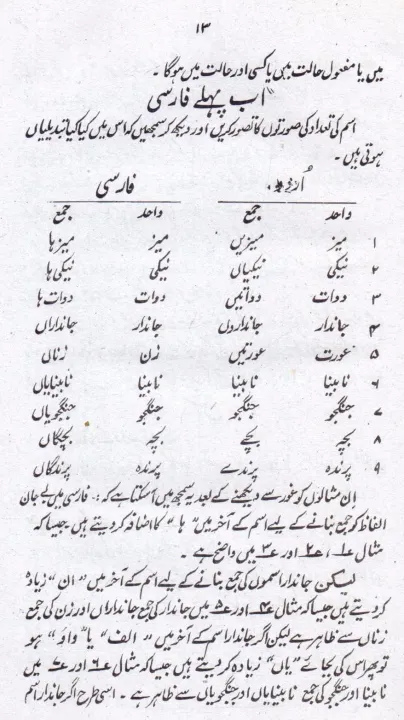 ۱۳
میں یا مفعول حالت میں یا کسی اور حالت میں ہوگا۔
"اب پہلے فارسی
اسم کی تعداد کی صورتوں کا تصور کریں اور دیکھ کر سمجھیں کہ اس میں کیا کیا تبدیلیاں
ہوتی ہیں۔
اُردو فارسی
واحد جمع واحد جمع
۱ میز میزیں میز میزہا
۲ نیکی نیکیاں نیکی نیکی ہا
۳ دوات دواتیں دوات دوات ہا
۴ جاندار جانداروں جاندار جانداراں
۵ عورت عورتیں زن زناں
۶ نابینا نابینا نابینا نابینایاں
۷ جنگجو جنگجو جنگجو جنگجویاں
۸ بچہ بچے بچہ بچگاں
۹ پرندہ پرندے پرندہ پرندگاں
ان مثالوں کو غور سے دیکھنے کے بعد یہ سمجھ میں آسکتا ہے کہ :۔ فارسی میں بے جان
الفاظ کو جمع بنانے کے لیے اسم کے آخر میں "ہا" کا اضافہ کر دیتے ہیں جیسا کہ
مثال ۱، ۲ اور ۳ میں واضح ہے۔
لیکن جاندار اسموں کی جمع بنانے کے لیے اسم کے آخر میں "ان" زیادہ
کر دیتے ہیں جیسا کہ مثال ۴ اور ۵ میں جاندار کی جمع جانداراں اور زن کی جمع
زناں سے ظاہر ہے لیکن اگر جاندار اسم کے آخر میں "الف" یا "واؤ" ہو
تو پھر اس کی بجائے "یاں" زیادہ کر دیتے ہیں جیسا کہ مثال ۶ اور ۷ میں
نابینا اور جنگجو کی جمع نابینایاں اور جنگجویاں سے ظاہر ہے۔ اسی طرح اگر جاندار اسم